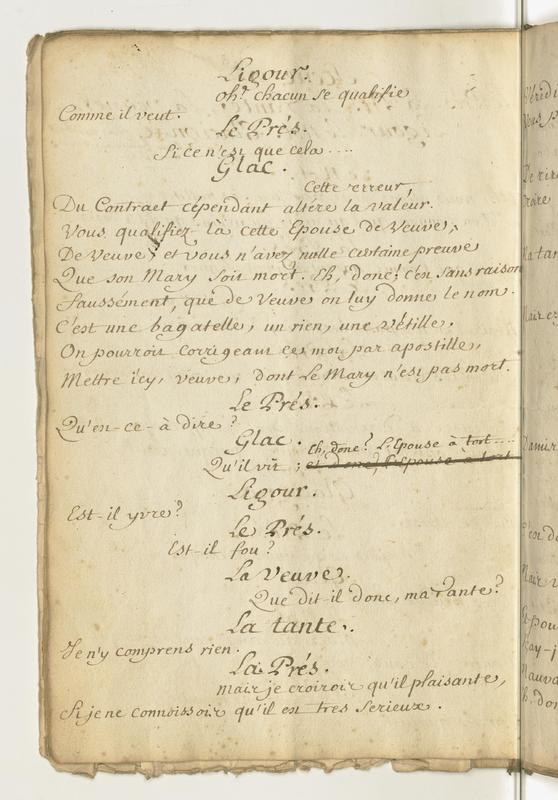 Ligour.
oh! chacun se qualifie
Comme il veut.
Le Prés.
Si ce n'est que cela ....
Glac.
Cette erreur,
Du Contract cépendant altére la valeur.
Vous qualifiez là cette Epouse de Veuve,
De Veuve, et vous n'avez nulle certaine preuve
Que son Mary soit mort. Eh, donc! c'est sans raison
faussément, que de Veuve on luy donne le nom.
C'est une bagatelle, un rien, une vétille,
On pourroit corrigeant ce mot par apostille,
Mettre icy, veuve, dont Le Mary n'est pas mort.
Le Prés.
Qu'en-ce-à dire?
Glac.
Eh, donc? L'Epouse à tort ....
Qu'il vit; et donc, l'Epouse à tort
Ligour.
Est-il yvre?
Le Prés.
Est-il fou?
La Veuve.
Que dit-il donc, ma tante?
La tante.
Je n'y comprens rien.
La Prés.
Mais je croirois qu'il plaisante,
Si je ne connoissois qu'il est tres serieux.